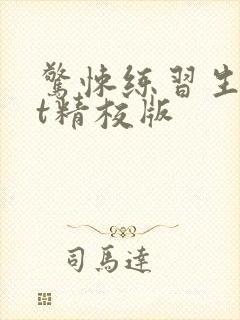 驚悚练習生
t精校版
司馬達